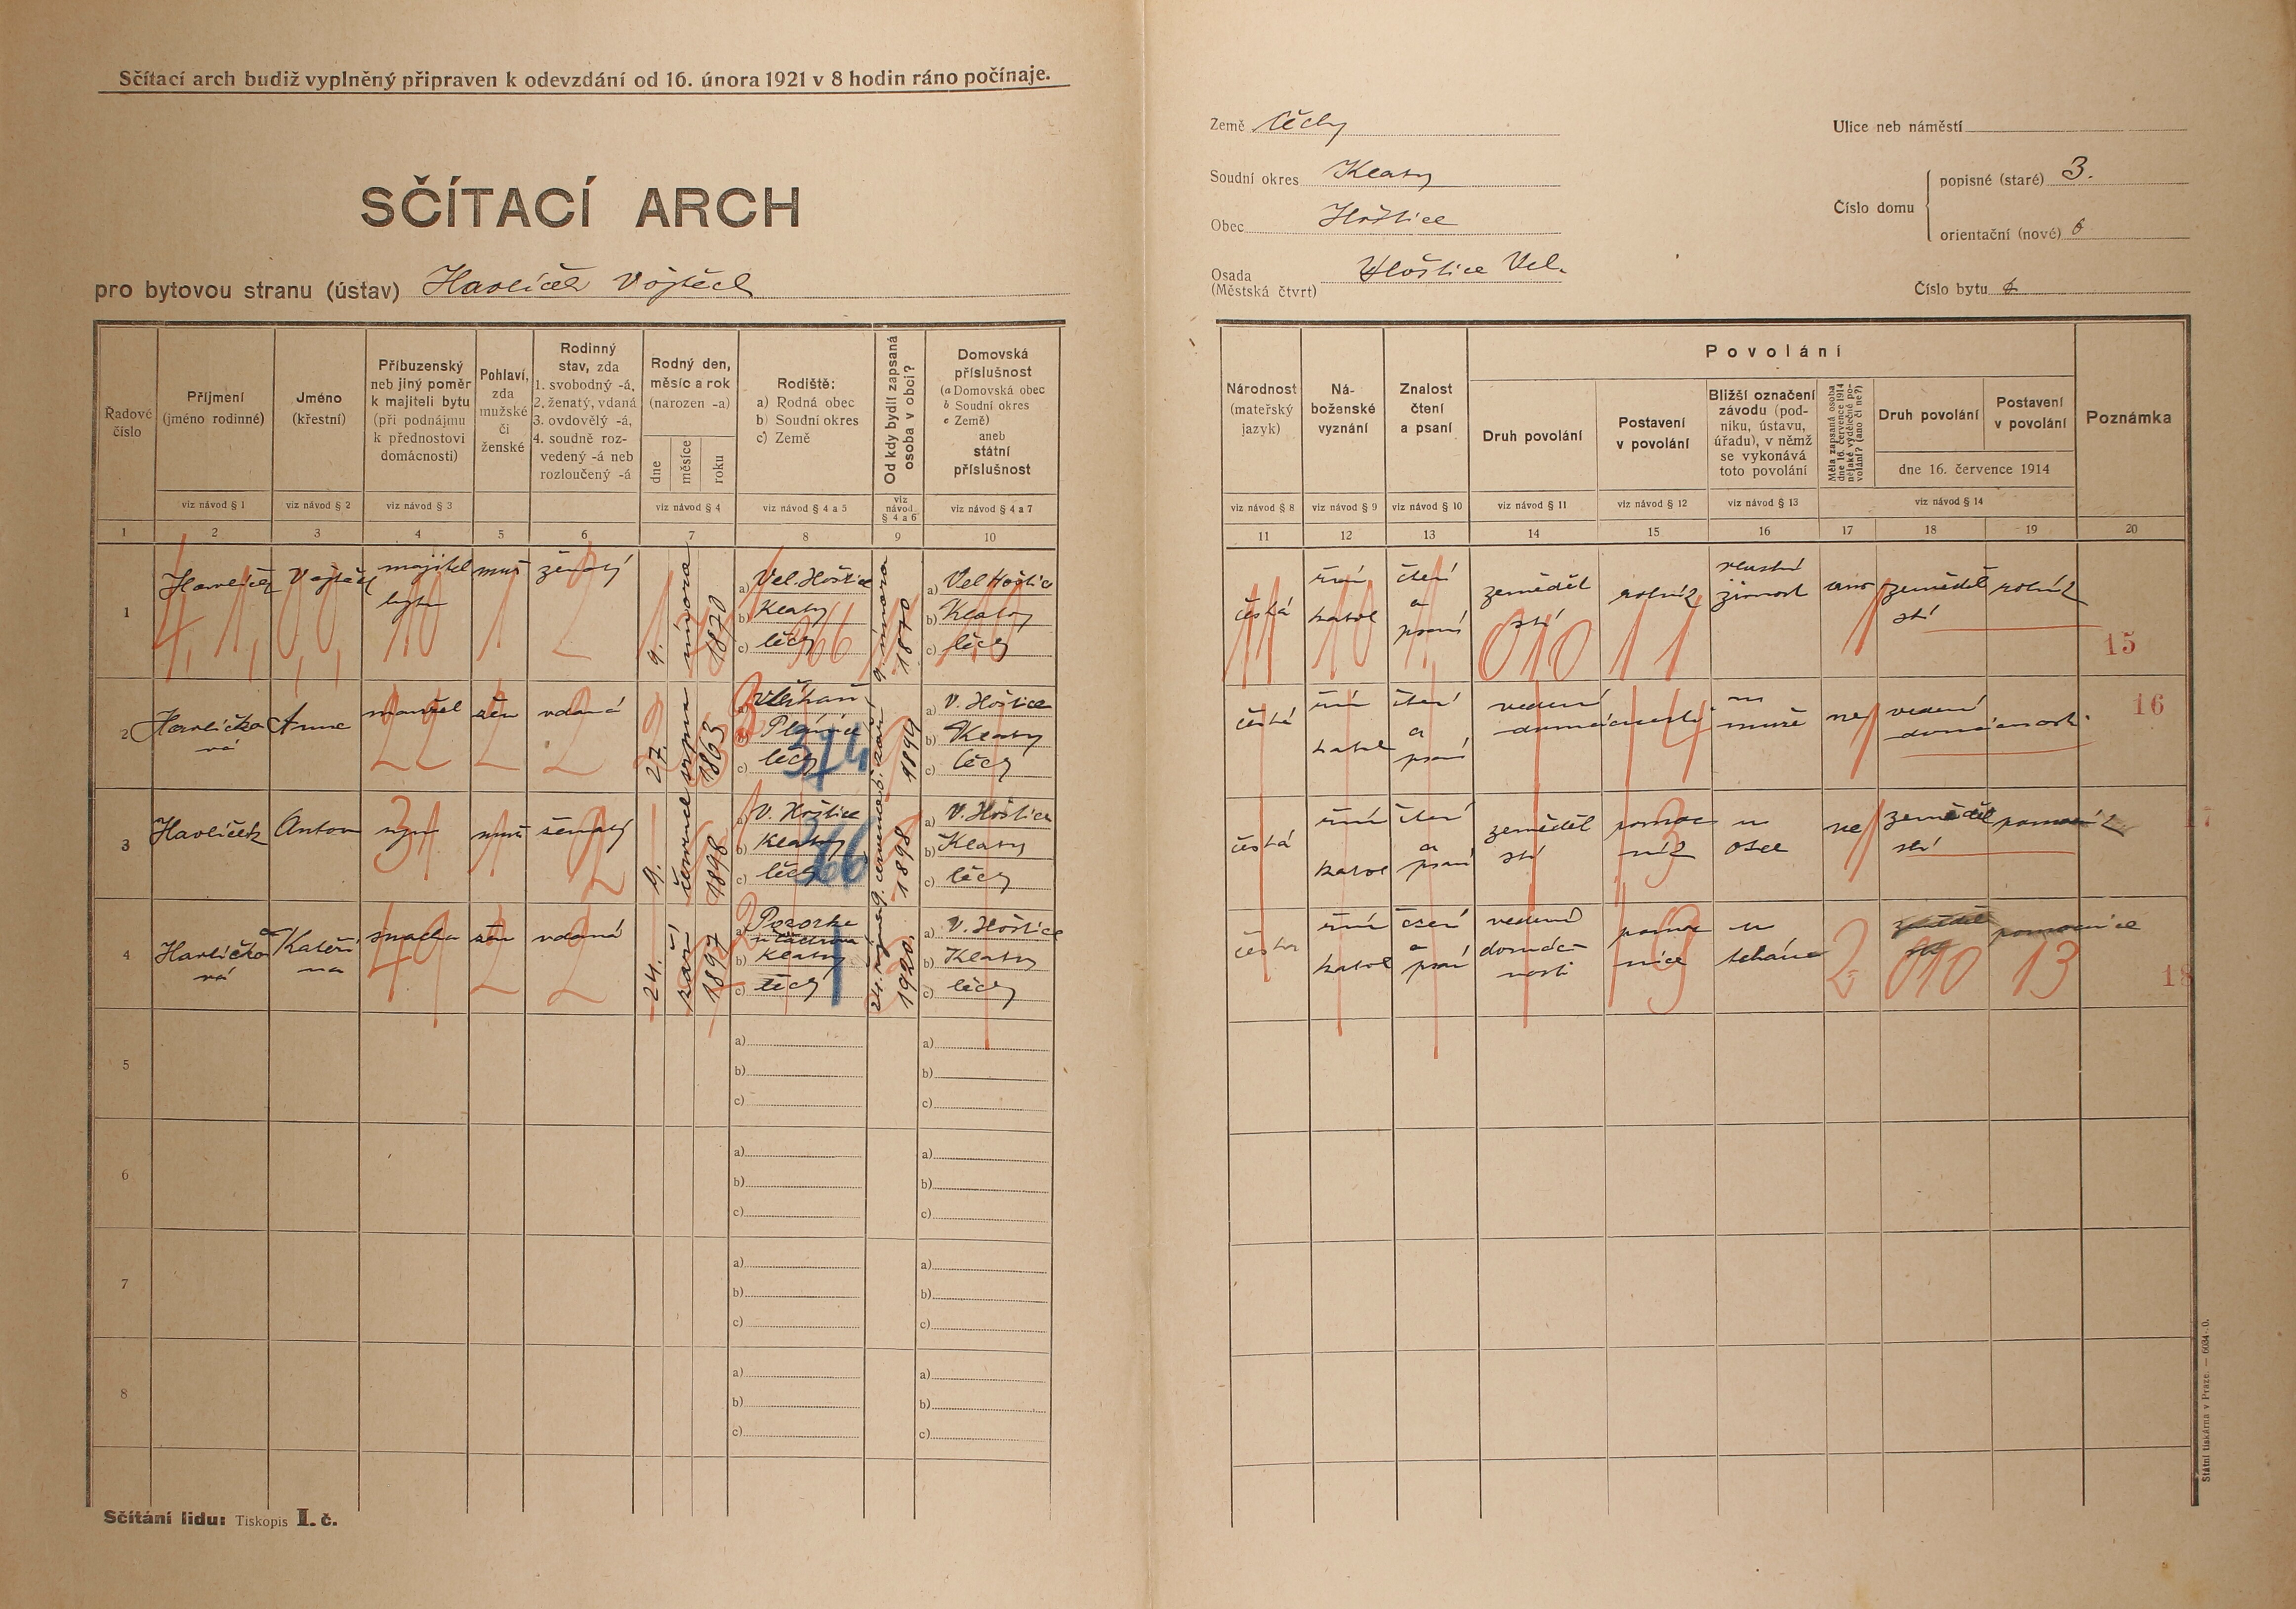 Sčítací arch budiž vyplněný připraven k odevzdání od 16. února 1921 v 8 hodin ráno počínaje.
SČÍTACÍ ARCH
pro bytovou stranu (ústav) Havlíček Vojtěch
Země Čechy
Soudní okres Klatovy
Obec Hoštice
Osada Hoštice Vel.
(Městská čtvrt)
Ulice neb náměstí
Číslo domu
popisné (staré) 3.
orientační (nové) 6
Číslo bytu
Řadové číslo
Příjmení (jméno rodinné)
viz návod § 1
Jméno (křestní)
viz návod § 2
Příbuzenský neb jiný poměr k majiteli bytu (při podnájmu k přednostovi domácnosti)
viz návod § 3
Pohlaví, zda mužské či ženské
Rodinný stav, zda 1. svobodný -á, 2. ženatý, vdaná 3. ovdovělý -á, 4. soudně rozvedený -á neb rozloučený -á
Rodný den, měsíc a rok (narozen -a)
dne měsíce roku
viz návod § 4
Rodiště: a) Rodná obec b) Soudní okres c) Země
viz návod § 4 a 5
Od kdy bydlí zapsaná osoba v obci?
viz návod § 4 a 6
Domovská příslušnost (a Domovská obec b Soudní okres c Země) aneb státní příslušnost
viz návod § 4 a 7
Národnost (mateřský jazyk)
viz návod § 8
Náboženské vyznání
viz návod § 9
Znalost čtení a psaní
viz návod § 10
Povolání
Druh povolání
viz návod § 11
Postavení v povolání
viz návod § 12
Bližší označení závodu (podniku, ústavu, úřadu), v němž se vykonává toto povolání
viz návod § 13
Měla zapsaná osoba dne 16. července 1914 nějaké výdělečné povolání? (ano či ne?)
Druh povolání
Postavení v povolání
dne 16. července 1914
viz návod § 14
Poznámka
1 2 3 4 5 6 7 8 9 10 11 12 13 14 15 16 17 18 19 20
1 Havlíček Vojtěch majitel bytu muž ženatý 9. února 1870
a) Vel. Hoštice
b) Klatovy
c) Čechy
9. února 1870
a) Vel Hoštic
b) Klatovy
c) Čechy
česká řím katol čtení a psaní zemědělství rolník vlastní živnost ano zemědělství rolník
15
2 Havlíčková Anna manžel žen vdaná 27. srpna 1863
a) Vlčkaň
b) Plánice
c) Čechy
374
září 1894
a) V. Hoštice
b) Klatovy
c) Čechy
česká řím katol čtení a psaní vedení domácnosti ne vedení domácnosti
16
3 Havlíček Anton syn muž ženatý 9. července 1898
a) V. Hoštice
b) Klatovy
c) Čechy
366
9. července 1898
a) V. Hoštice
b) Klatovy
c) Čechy
česká řím katol čtení a psaní zemědělství pomocník u otce ne zemědělství pomocník
4 Havlíčková Kateřina snacha žen vdaná 24. září 1897
b) Klatovy
c) Čechy
24. října 1920.
a) V. Hoštice
b) Klatovy
c) Čechy
česká řím katol čtení a psaní vedení domácnosti pomocnice u tchána pomocnice
010 13
18
5
a)
b)
c)
a)
b)
c)
6
a)
b)
c)
a)
b)
c)
7
a)
b)
c)
a)
b)
c)
8
a)
b)
c)
a)
b)
c)
Sčítání lidu: Tiskopis I. č.
Státní tiskárna v Praze. — 6034-0.